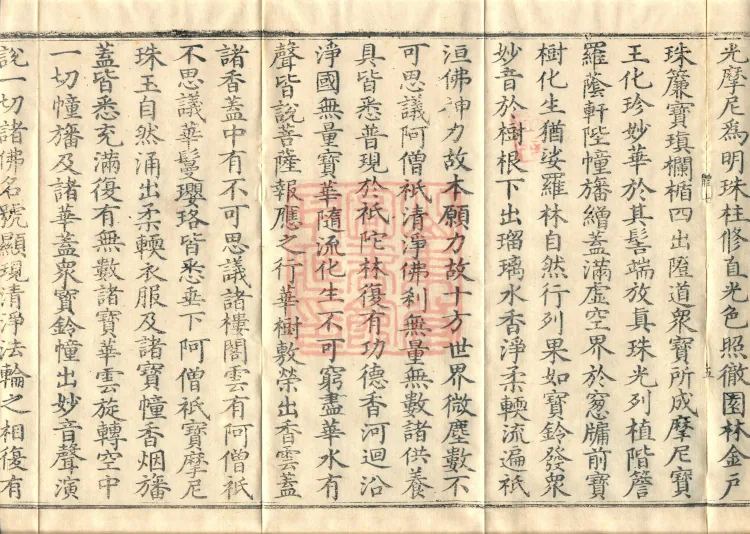 光摩尼為明珠柱修直光色照徹園林金戶
珠簾寶瑱欄楯四出隥道眾寶所成摩尼寶
王化珍妙華於其髻端放真珠光列植階簷
羅蔭軒陛幢旛繒蓋滿虛空界於窓牖前寶
樹化生猶娑羅林自然行列果如寶鈴發眾
妙音於樹根下出瑠璃水香淨柔輭流遍祇
洹佛神力故本願力故十方世界微塵數不
可思議阿僧祇清淨佛刹無量無數諸供養
具皆悉普現於祇陀林復有功德香河迴沿
淨國無量寶華隨流化生不可窮盡華水有
聲皆說菩薩報應之行華樹敷榮出香雲蓋
諸香蓋中有不可思議諸樓閣雲有阿僧祇
不思議華鬘瓔珞皆悉垂下阿僧祇寶摩尼
珠玉自然涌出柔輭衣服及諸寶幢香烟旛
蓋皆悉充滿復有無數諸寶華雲旋轉空中
一切幢旛及諸華蓋眾寶鈴幢出妙音聲演
說一切諸佛名號顯現清淨法輪之相復有